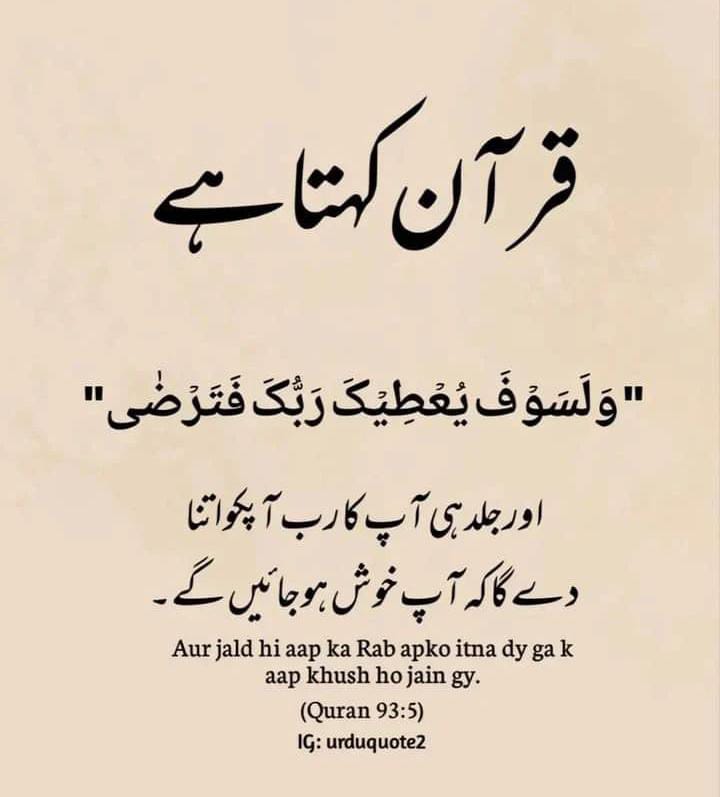 قرآن کہتا ہے
"وَلَسَوۡفَ یُعۡطِیۡکَ رَبُّکَ فَتَرۡضٰی"
اور جلد ہی آپ کا رب آپکو اتنا
دے گا کہ آپ خوش ہو جائیں گے۔
Aur jald hi aap ka Rab apko itna dy ga k
aap khush ho jain gy.
(Quran 93:5)
IG: urduquote2